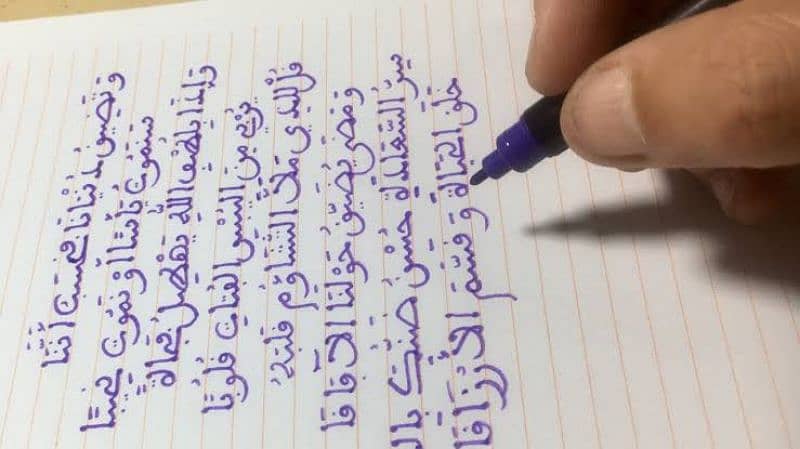 وتضيق دنيانا فنحسب أننا
سنموت يأسا أو نموت نحيبا
وإذا بلطف الله يهطل فجأة
يربي من اليبس الفتات قلوبا
قل للذي ملأ التشاؤم قلبه
ومضى يضيق حولنا الآفاقا
سر السعادة حسن ظنك بال
خلق الحياة وقسم الأرزاقا